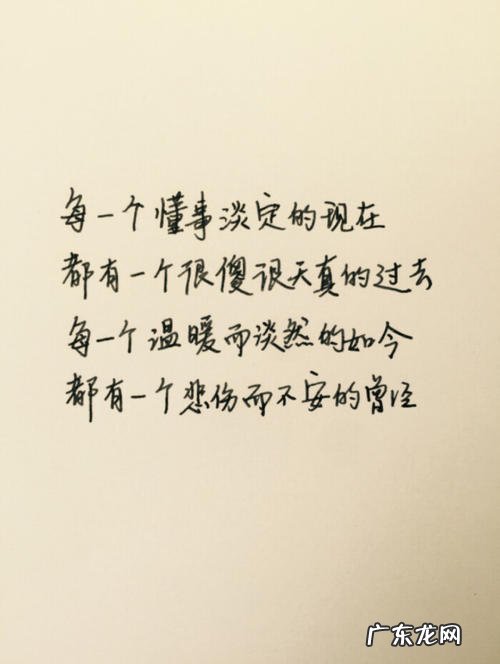 每一个懂事淡定的现在
都有一个很傻很天真的过去
每一个温暖而淡然的如今
都有一个悲伤而不安的曾经
广东龙网